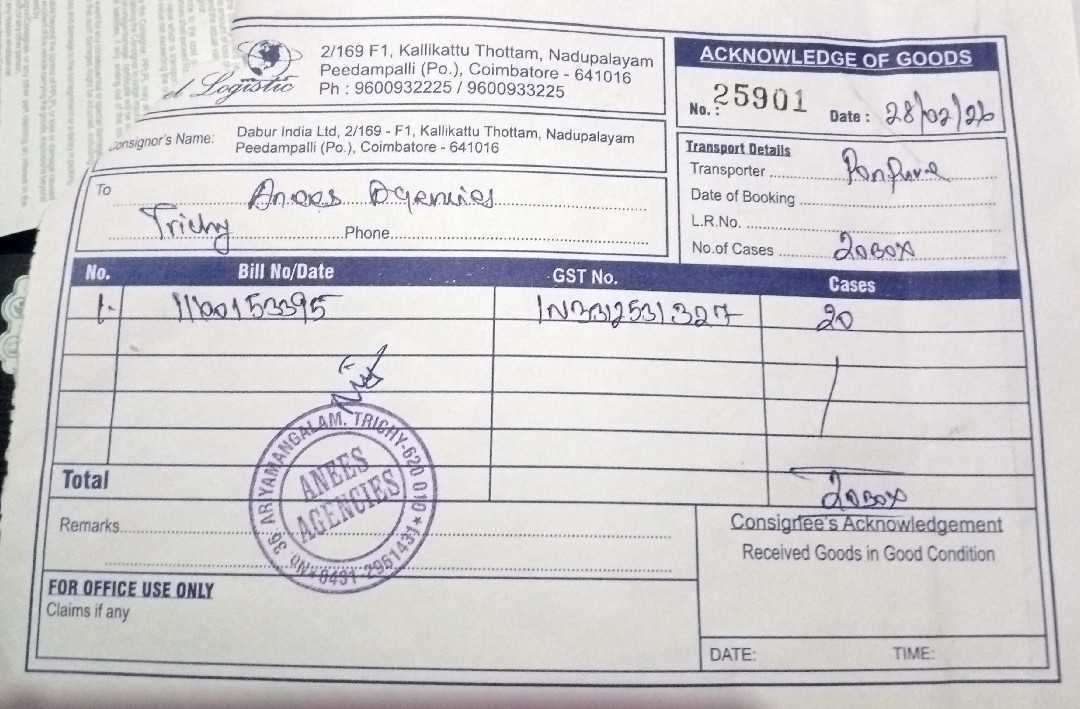 el Logistic
2/169 F1, Kallikattu Thottam, Nadupalayam
Peedampalli (Po.), Coimbatore - 641016
Ph : 9600932225 / 9600933225
ACKNOWLEDGE OF GOODS
No. : 25901 Date : 28/02/26
Consignor's Name: Dabur India Ltd, 2/169 - F1, Kallikattu Thottam, Nadupalayam
Peedampalli (Po.), Coimbatore - 641016
Transport Details
Transporter
Date of Booking
L.R.No.
No.of Cases 20 Box
To Anees Agencies
Trichy Phone
No. Bill No/Date GST No. Cases
1. 1100153395 IN3312531327 20
Total 20 Box
ARIYAMANGALAM, TRICHY-620 010
ANEES
AGENCIES
Remarks
Consignee's Acknowledgement
Received Goods in Good Condition
FOR OFFICE USE ONLY
Claims if any
DATE: TIME: